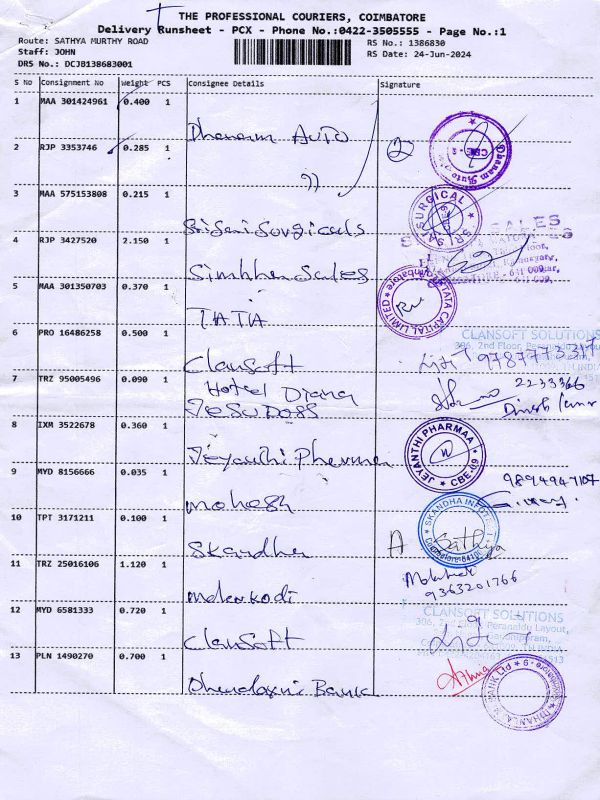 THE PROFESSIONAL COURIERS, COIMBATORE
Delivery Runsheet - PCX - Phone No.:0422-3505555 - Page No.:1
Route: SATHYA MURTHY ROAD
RS No.: 1386830
Staff: JOHN
RS Date: 24-Jun-2024
DRS No.: DCJB138683001
S No Consignment No Weight PCS Consignee Details Signature
1 MAA 301424961 0.400 1
Dhanam Auto
2 RJP 3353746 0.285 1
”
3 MAA 575153808 0.215 1
SriSai Surgicals
SRI SAI SURGICAL
4 RJP 3427520 2.150 1
Simhhan Sales
SALES
5 MAA 301350703 0.370 1
TATA
TATA CAPITAL LIMITED
Coimbatore
6 PRO 16486258 0.500 1
Clansoft
CLANSOFT SOLUTIONS
306, 2nd Floor,
7 TRZ 95005496 0.090 1
Hotel Diana
JESUDOSS
2233366
8 IXM 3522678 0.360 1
Jeyanthi Pharmaa
JEYANTHI PHARMAA
CBE
9 MYD 8156666 0.035 1
Mohesh
9894947107
10 TPT 3171211 0.100 1
Skandha
SKANDHA
A Sathya
11 TRZ 25016106 1.120 1
Malarkodi
9363201766
12 MYD 6581333 0.720 1
Clansoft
CLANSOFT SOLUTIONS
Layout,
13 PLN 1490270 0.700 1
Dhanalaxmi Bank
BANK LTD